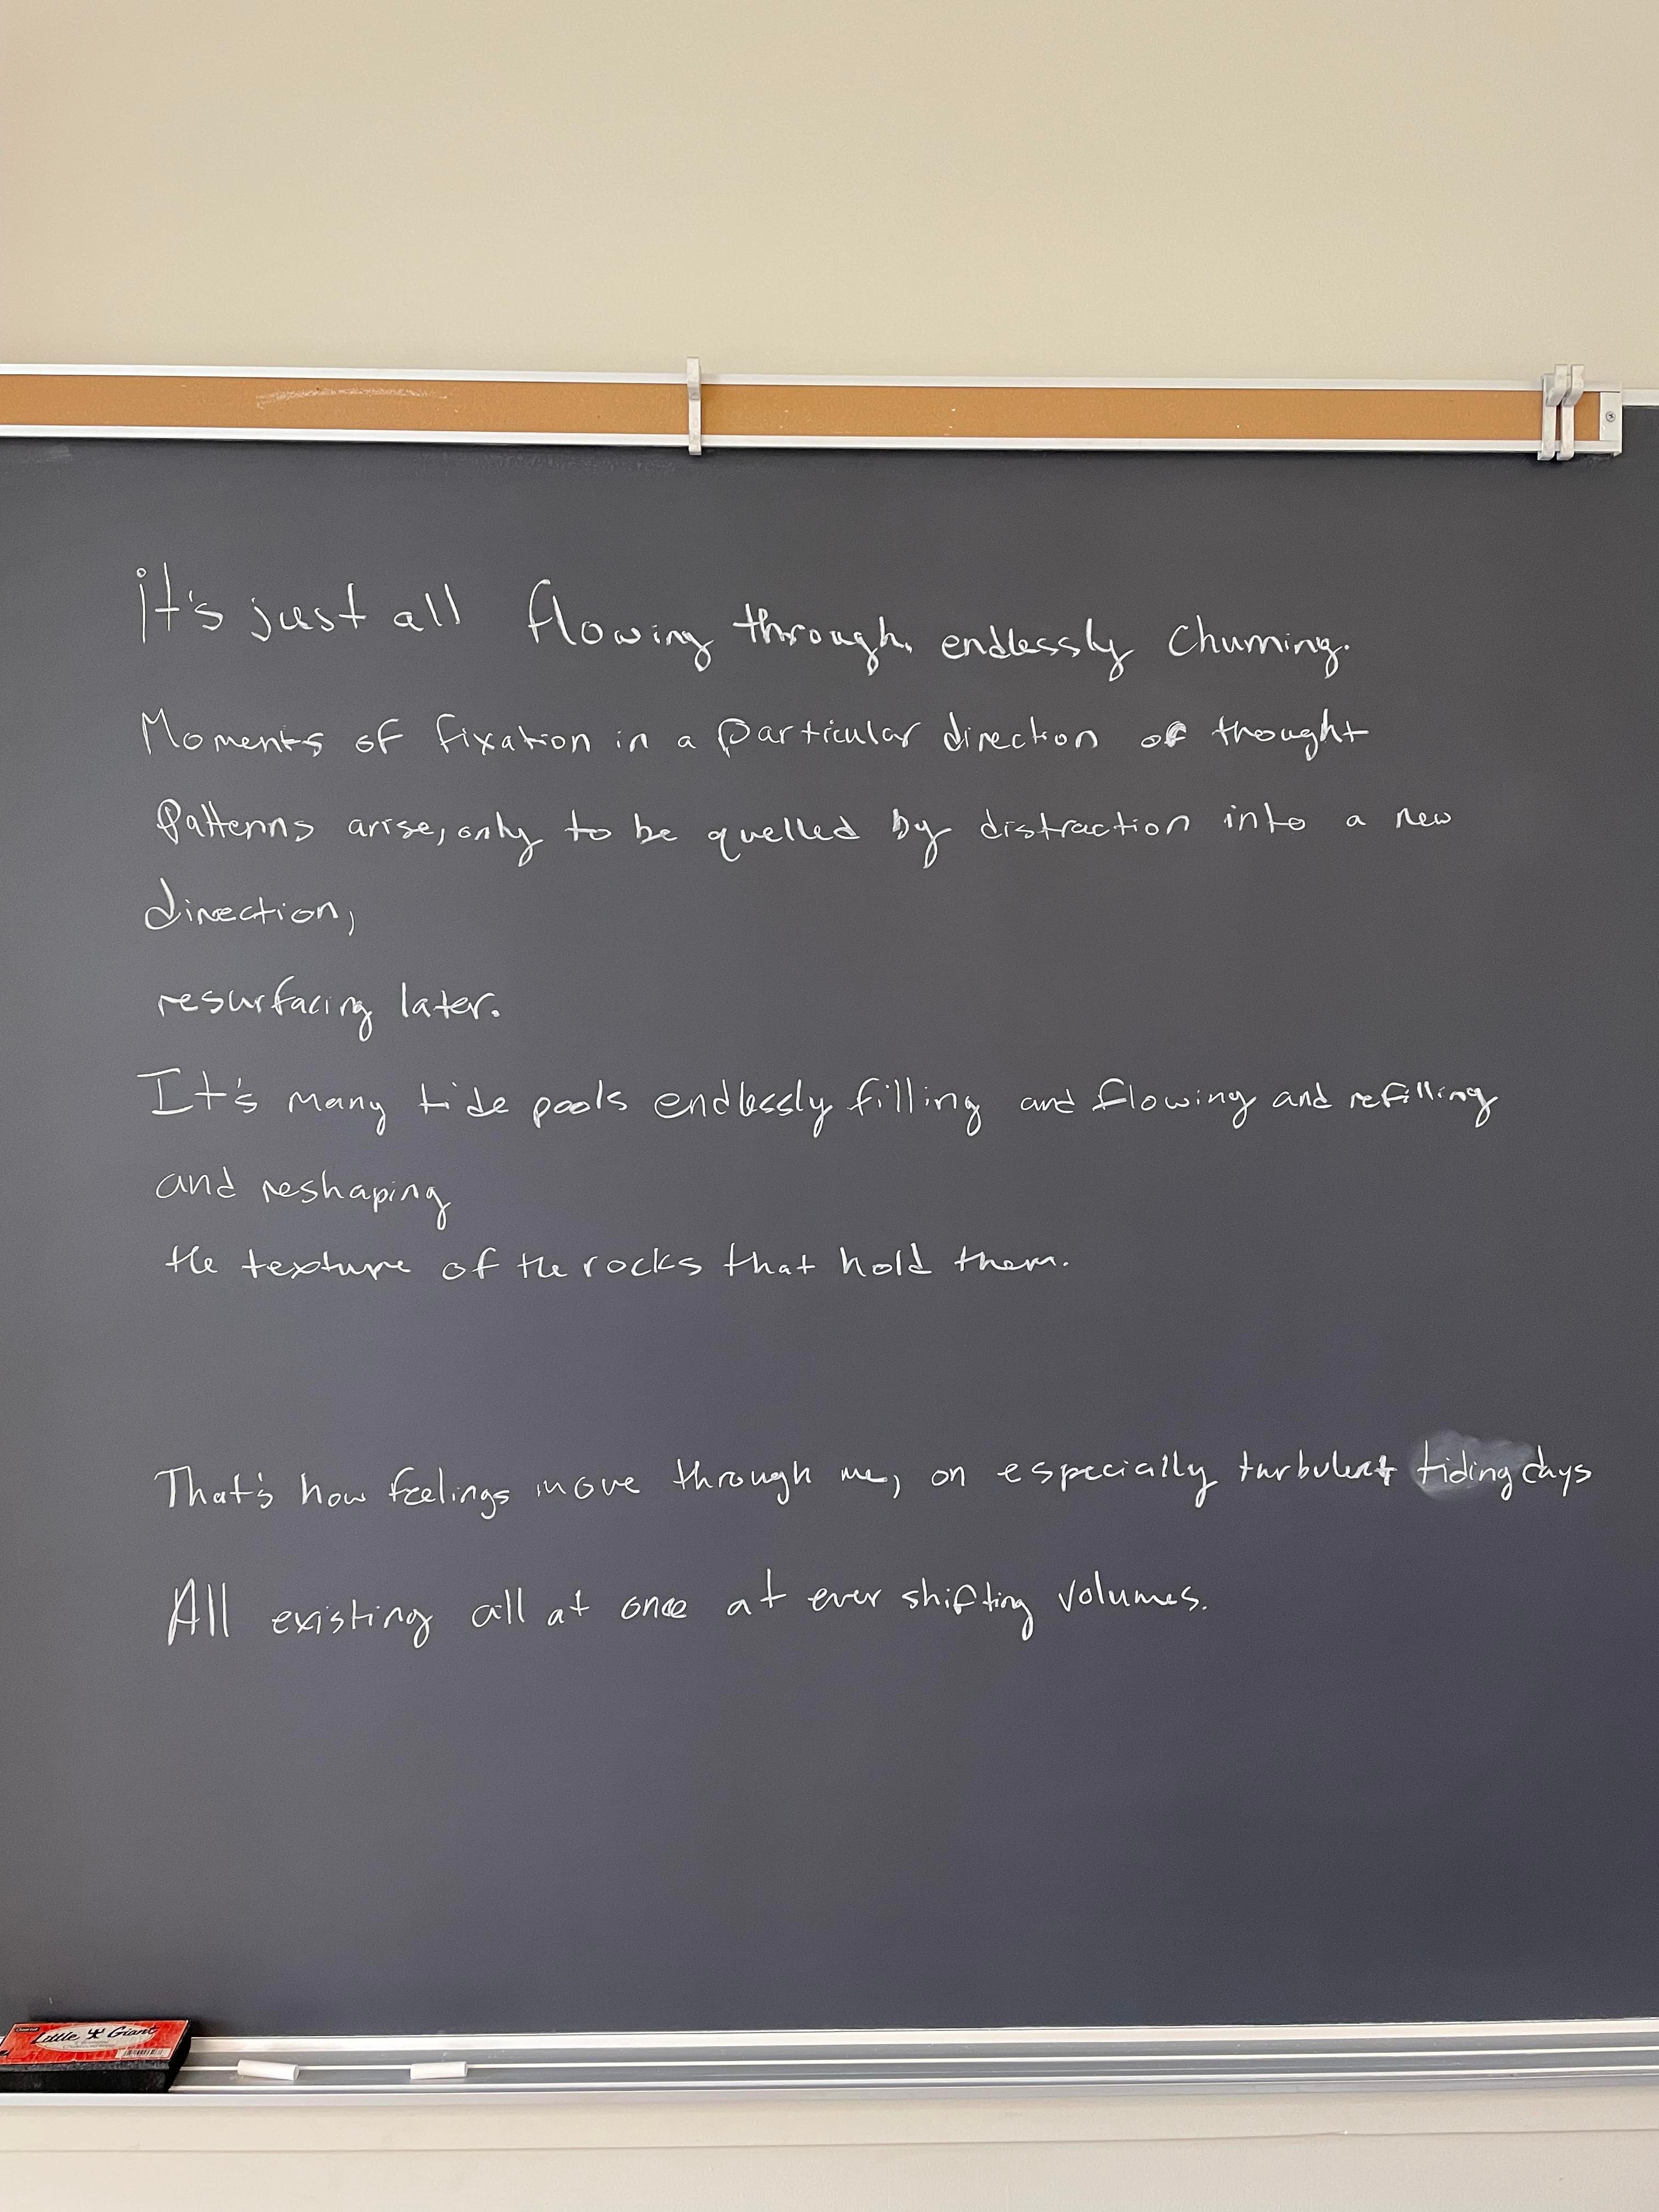 it's just all flowing through. endlessly churning.
Moments of fixation in a particular direction of thought
Patterns arise, only to be quelled by distraction into a new
direction,
resurfacing later.
It's many tide pools endlessly filling and flowing and refilling
and reshaping
the texture of the rocks that hold them.
That's how feelings move through me, on especially turbulent tiding days
All existing all at once at ever shifting volumes.
Little Giant